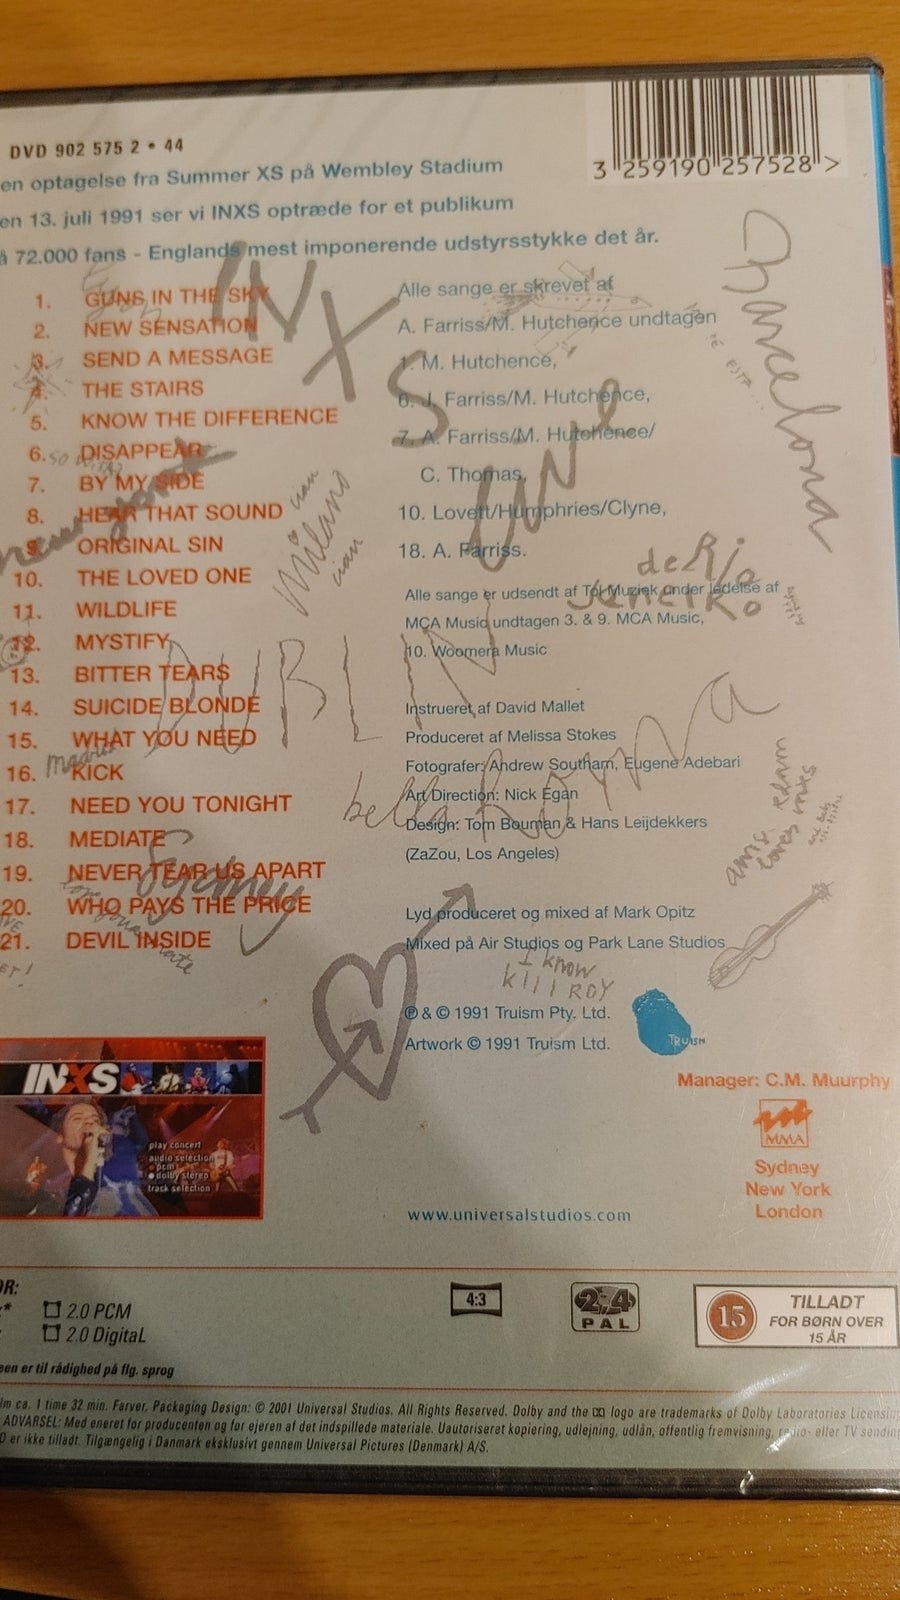 3 259190 257528 >
DVD 902 575 2 • 44
en optagelse fra Summer XS på Wembley Stadium
en 13. juli 1991 ser vi INXS optræde for et publikum
å 72.000 fans - Englands mest imponerende udstyrsstykke det år.
1. GUNS IN THE SKY
2. NEW SENSATION
3. SEND A MESSAGE
4. THE STAIRS
5. KNOW THE DIFFERENCE
6. DISAPPEAR
7. BY MY SIDE
8. HEAR THAT SOUND
9. ORIGINAL SIN
10. THE LOVED ONE
11. WILDLIFE
12. MYSTIFY
13. BITTER TEARS
14. SUICIDE BLONDE
15. WHAT YOU NEED
16. KICK
17. NEED YOU TONIGHT
18. MEDIATE
19. NEVER TEAR US APART
20. WHO PAYS THE PRICE
21. DEVIL INSIDE
Alle sange er skrevet af
A. Farriss/M. Hutchence undtagen
1. M. Hutchence,
6. J. Farriss/M. Hutchence,
7. A. Farriss/M. Hutchence/
C. Thomas,
10. Lovett/Humphries/Clyne,
18. A. Farriss.
Alle sange er udsendt af Tol Muziek under ledelse af
MCA Music undtagen 3. & 9. MCA Music,
10. Woomera Music
Instrueret af David Mallet
Produceret af Melissa Stokes
Fotografer: Andrew Southam, Eugene Adebari
Art Direction: Nick Egan
Design: Tom Bouman & Hans Leijdekkers
(ZaZou, Los Angeles)
Lyd produceret og mixed af Mark Opitz
Mixed på Air Studios og Park Lane Studios
℗ & © 1991 Truism Pty. Ltd.
Artwork © 1991 Truism Ltd.
TRUISM
Manager: C.M. Muurphy
MMA
Sydney
New York
London
INXS
Live
Barcelona
new york
Milano
de Rio
Janeiro
DUBLIN
bella Roma
Sydney
I know
KILLROY
INXS
play concert
audio selection
pcm
dolby stereo
track selection
www.universalstudios.com
OR:
2.0 PCM
2.0 DigitaL
4:3
2,4
PAL
15
TILLADT
FOR BØRN OVER
15 ÅR
een er til rådighed på flg. sprog
lm ca. 1 time 32 min. Farver, Packaging Design: © 2001 Universal Studios. All Rights Reserved. Dolby and the logo are trademarks of Dolby Laboratories Licensing
ADVARSEL: Med eneret for producenten og for ejeren af det indspillede materiale. Uautoriseret kopiering, udlejning, udlån, offentlig fremvisning, radio- eller TV sending
D er ikke tilladt. Tilgængelig i Danmark eksklusivt gennem Universal Pictures (Denmark) A/S.